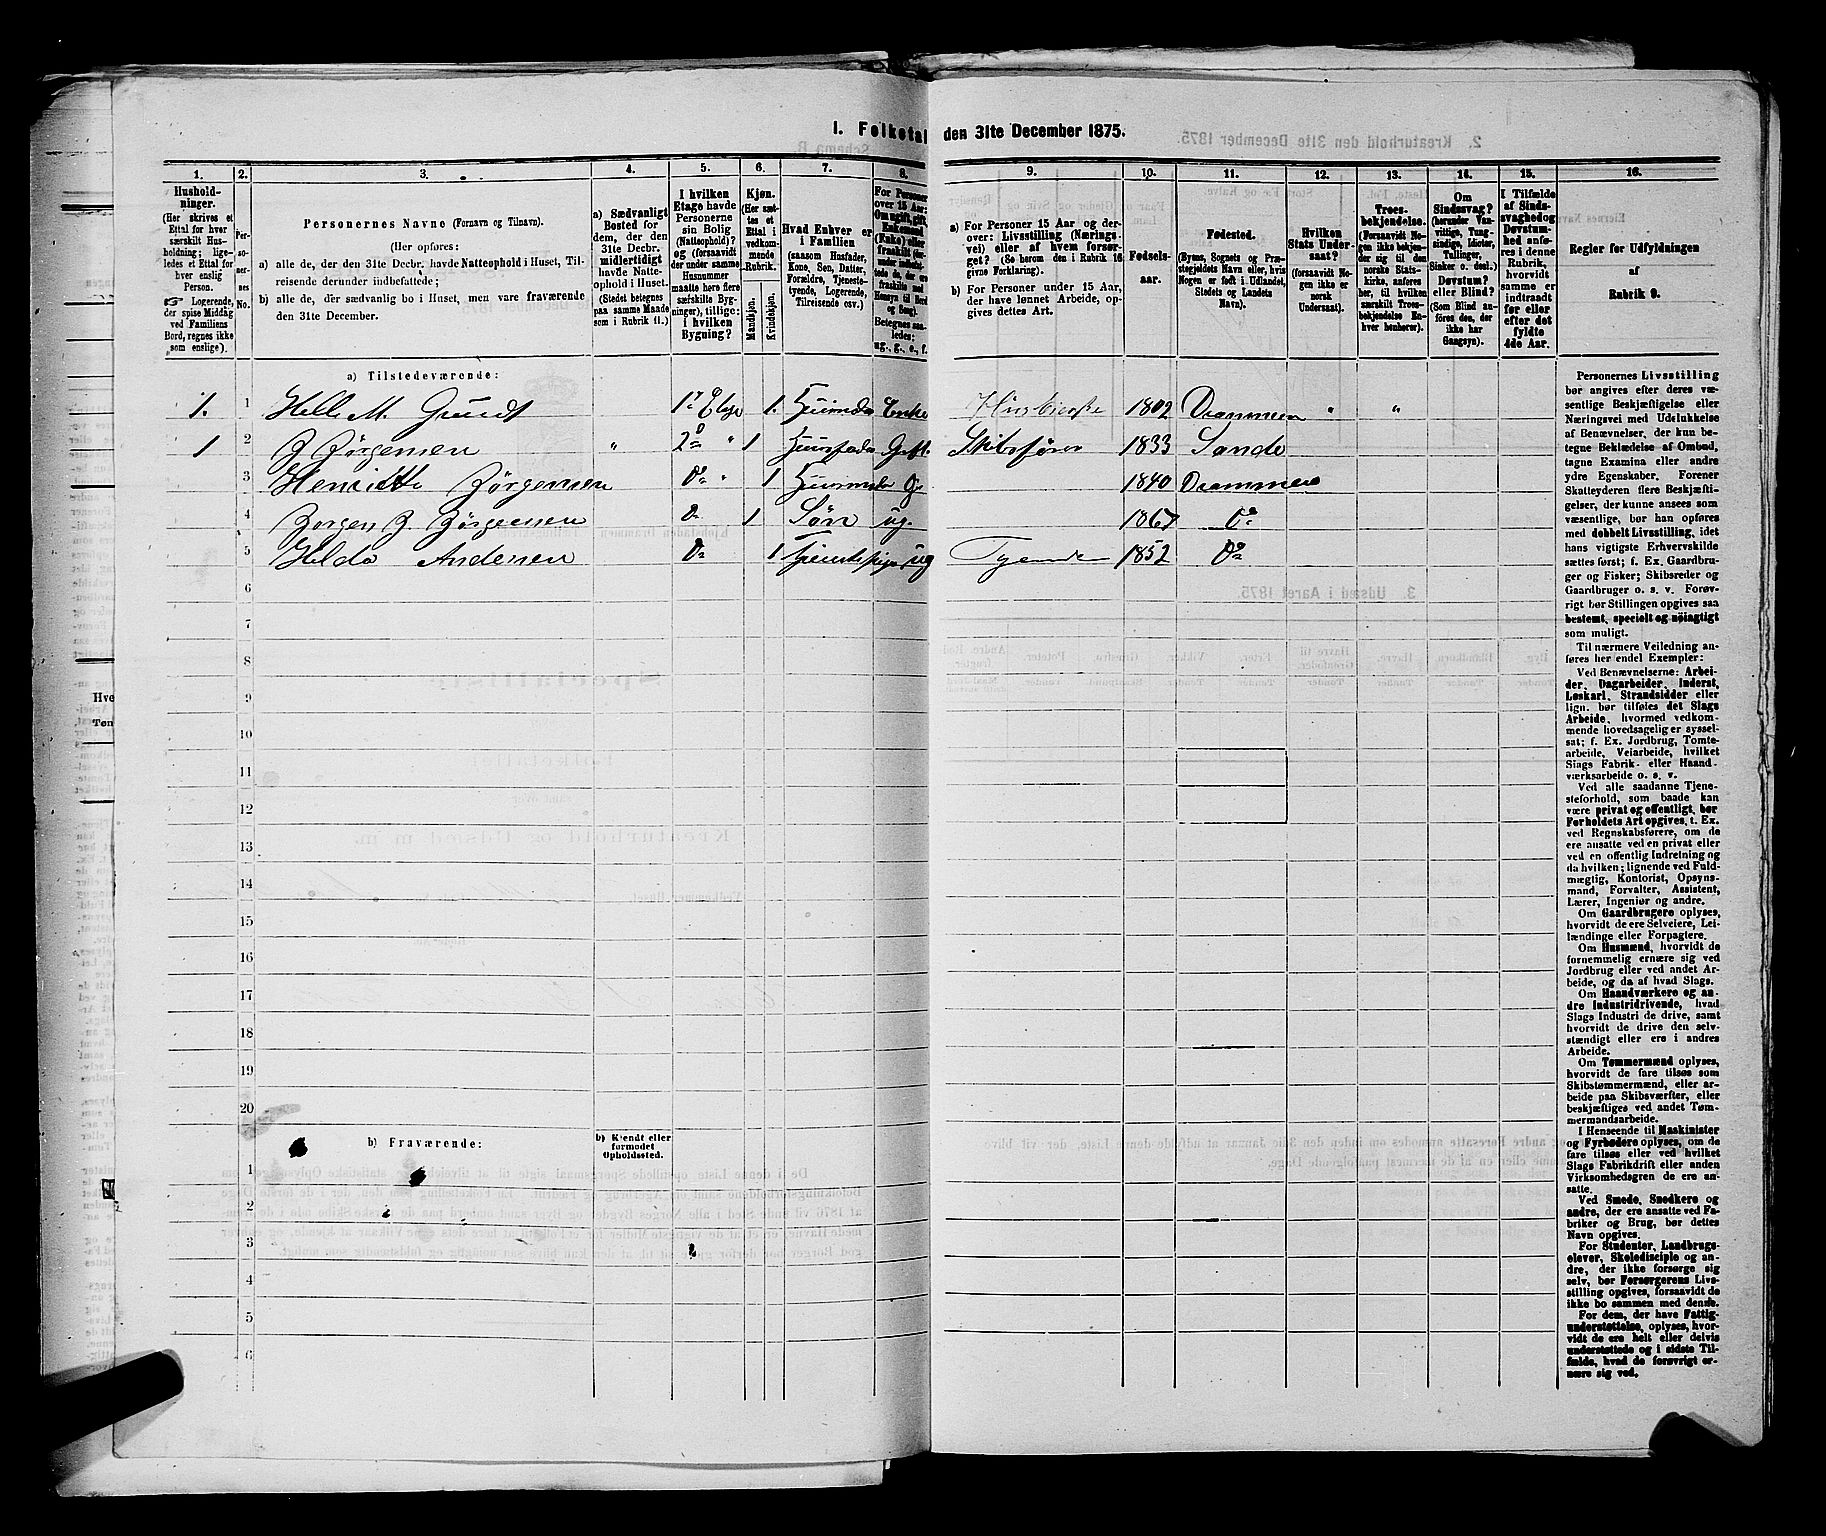 1. Folketal den 31te December 1875.
1. 2. 3. 4. 5. 6. 7. 8. 9. 10. 11. 12. 13. 14. 15. 16.
Husholdninger. (Her skrives et Ettal for hver særskilt Husholdning; ligeledes et Ettal for hver enslig Person. Logerende, der spise Middag ved Familiens Bord, regnes ikke som enslige).
Personernes No.
Personernes Navne (Fornavn og Tilnavn).
(Her opføres:
a) alle de, der den 31te Decbr. havde Natteophold i Huset, Tilreisende derunder indbefattede;
b) alle de, der sædvanlig bo i Huset, men vare fraværende den 31te December.
a) Sædvanligt Bosted for dem, der den 31te Decbr. midlertidigt havde Natteophold i Huset. (Stedet betegnes paa samme Maade som i Rubrik 11.)
I hvilken Etage havde Personerne sin Bolig (Natteophold)? og (forsaavidt der under samme Husnummer maatte høre flere særskilte Bygninger), tillige: i hvilken Bygning?
Kjøn. (Her sættes et Ettal i vedkommende Rubrik. Mandskjøn. Kvindekjøn.
Hvad Enhver er i Familien (saasom Husfader, Kone, Søn, Datter, Forældre, Tjenestetyende, Logerende, Tilreisende osv.)
For Personer over 15 Aar: Om ugift, gift, Enkemand (Enke) eller fraskilt
Betegnes saaledes: ug., g., e., f.
a) For Personer 15 Aar og derover: Livsstilling (Næringsvei) eller af hvem forsørget? (Se herom den i Rubrik 16 givne Forklaring).
b) For Personer under 15 Aar, der have lønnet Arbeide, opgives dettes Art.
Fødselsaar.
Fødested. (Byens, Sognets og Præstegjeldets Navn eller, hvis Nogen er født i Udlandet, Stedets og Landets Navn).
Hvilken Stats Undersaat? (forsaavidt Nogen ikke er norsk Undersaat).
Troesbekjendelse. (Forsaavidt Nogen ikke bekjender sig til den norske Statskirke, anføres her, til hvilken særskilt Troesbekjendelse Enhver henhører).
Om Sindssvag? (herunder Vanvittige, Tungsindige, Idioter, Tullinger, Sinker o. desl.) Døvstum? eller Blind? (Som Blind anføres den, der ikke har Gangsyn).
I Tilfælde af Sindssvaghed og Døvstumhed anføres i denne Rubrik, hvorvidt samme er indtraadt før eller efter det fyldte 4de Aar.
Regler for Udfyldningen af Rubrik 9.
a) Tilstedeværende:
1. 1 Helle M. Grundt 1ste Etage 1. Huusmoder Enke 1802 Drammen " "
1 2 J. Jørgensen " 2den " 1 Huusfader Gift. Skibsfører 1833 Sande
3 Henriette Jørgensen Do " 1 Huusmoder G. 1840 Drammen
4 Jørgen J. Jørgensen Do 1 Søn ug. 1867 Do
5 Helda Andersen Do 1 Tjenestepige ug Tyende 1852 Do
6
7
8
9
10
11
12
13
14
15
16
17
18
19
20
b) Fraværende:
b) Kjendt eller formodet Opholdssted.
1
2
3
4
5
6
Personernes Livsstilling
bør angives efter deres væ-
sentlige Beskjæftigelse eller
Næringsvei med Udelukkelse
af Benævnelser, der kun be-
tegne Beklædelse af Ombud,
tagne Examina eller andre
ydre Egenskaber. Forener
Skatteyderen flere Beskjæfti-
gelser, der kunne ansees som
væsentlige, bør han opføres
med dobbelt Livsstilling, idet
hans vigtigste Erhvervskilde
sættes først; f. Ex. Gaardbru-
ger og Fisker; Skibsreder og
Gaardbruger o. s. v. Forøv-
rigt bør Stillingen opgives saa
bestemt, specielt og nøiagtigt
som muligt.
Til nærmere Veiledning an-
føres her endel Exempler:
Ved Benævnelserne: Arbei-
der, Dagarbeider, Inderst,
Løskarl, Strandsidder eller
lign. bør tilføies det Slags
Arbeide, hvormed vedkom-
mende hovedsagelig er syssel-
sat; f. Ex. Jordbrug, Tomte-
arbeide, Veiarbeide, hvilket
Slags Fabrik- eller Haand-
værksarbeide o. s. v.
Ved alle saadanne Tjene-
steforhold, som baade kan
være privat og offentligt, bør
Forholdets Art opgives, t. Ex.
ved Regnskabsførere, om de
ere ansatte ved en privat eller
ved en offentlig Indretning og
da hvilken; lignende ved Fuld-
mægtig, Kontorist, Opsyns-
mand, Forvalter, Assistent,
Lærer, Ingeniør og andre.
Om Gaardbrugere oplyses,
hvorvidt de ere Selveiere, Lei-
lændinge eller Forpagtere.
Om Husmænd, hvorvidt de
fornemmelig ernære sig ved
Jordbrug eller ved andet Ar-
beide, og da af hvad Slags.
Om Haandværkere og an-
dre Industridrivende, hvad
Slags Industri de drive, samt
hvorvidt de drive den selv-
stændigt eller ere i andres
Arbeide.
Om Tømmermænd oplyses,
hvorvidt de fare tilsøs som
Skibstømmermænd, eller ar-
beide paa Skibsværfter, eller
beskjæftiges ved andet Tøm-
mermandsarbeide.
I Henseende til Maskinister
og Fyrbødere oplyses, om de
fare tilsøs eller ved hvilket
Slags Fabrikdrift eller anden
Virksomhedsgren de ere an-
satte.
Ved Smede, Snedkere og
andre, der ere ansatte ved Fa-
briker og Brug, bør dettes
Navn opgives.
For Studenter, Landbrugs-
elever, Skoledisciple og an-
dre, der ikke forsørge sig
selv, bør Forsørgerens Livs-
stilling opgives, forsaavidt de
ikke bo sammen med denne.
For dem, der have Fattig-
understøttelse, oplyses, hvor-
vidt de ere helt eller delvis
understøttede og i sidste Til-
fælde, hvad de forøvrigt er-
nære sig ved.